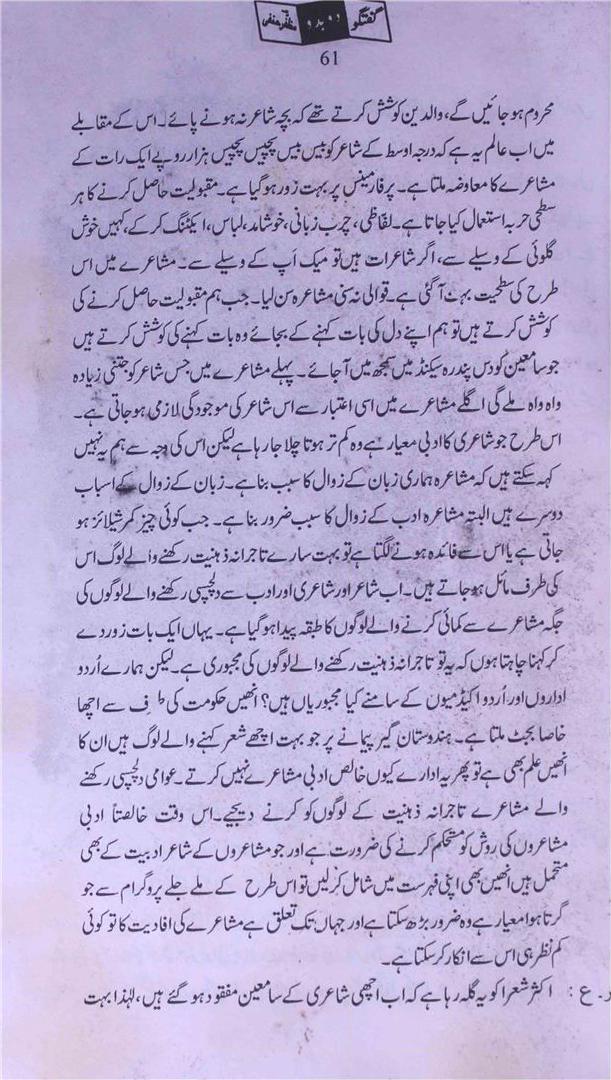 گفتگو دوبدو مظفر حنفی
61
محروم ہو جائیں گے، والدین کوشش کرتے تھے کہ بچہ شاعر نہ ہونے پائے۔ اس کے مقابلے
میں اب عالم یہ ہے کہ درجہ اوسط کے شاعر کو بیس بیس پچیس پچیس ہزار روپے ایک رات کے
مشاعرے کا معاوضہ ملتا ہے۔ پرفارمینس پر بہت زور ہو گیا ہے۔ مقبولیت حاصل کرنے کا ہر
سطحی حربہ استعمال کیا جاتا ہے۔ لفّاظی، چرب زبانی، خوشامد، لباس، ایکٹنگ کر کے، کہیں خوش
گلوئی کے وسیلے سے، اگر شاعرات ہیں تو میک اَپ کے وسیلے سے۔ مشاعرے میں اس
طرح کی سطحیت بہت آ گئی ہے۔ قوالی نہ سنی مشاعرہ سن لیا۔ جب ہم مقبولیت حاصل کرنے کی
کوشش کرتے ہیں تو ہم اپنے دل کی بات کہنے کے بجائے وہ بات کہنے کی کوشش کرتے ہیں
جو سامعین کو دس پندرہ سیکنڈ میں سمجھ میں آ جائے۔ پہلے مشاعرے میں جس شاعر کو جتنی زیادہ
واہ واہ ملے گی اگلے مشاعرے میں اسی اعتبار سے اس شاعر کی موجودگی لازمی ہو جاتی ہے۔
اس طرح جو شاعری کا ادبی معیار ہے وہ کم تر ہوتا چلا جا رہا ہے لیکن اس کی وجہ سے ہم یہ نہیں
کہہ سکتے ہیں کہ مشاعرہ ہماری زبان کے زوال کا سبب بنا ہے۔ زبان کے زوال کے اسباب
دوسرے ہیں البتہ مشاعرہ ادب کے زوال کا سبب ضرور بنا ہے۔ جب کوئی چیز کمرشیلائز ہو
جاتی ہے یا اس سے فائدہ ہونے لگتا ہے تو بہت سارے تاجرانہ ذہنیت رکھنے والے لوگ اس
کی طرف مائل ہو جاتے ہیں۔ اب شاعر اور شاعری اور ادب سے دلچسپی رکھنے والے لوگوں کی
جگہ مشاعرے سے کمائی کرنے والے لوگوں کا طبقہ پیدا ہو گیا ہے۔ یہاں ایک بات زور دے
کر کہنا چاہتا ہوں کہ یہ تو تاجرانہ ذہنیت رکھنے والے لوگوں کی مجبوری ہے۔ لیکن ہمارے اُردو
اداروں اور اُردو اکیڈمیوں کے سامنے کیا مجبوریاں ہیں؟ انھیں حکومت کی طرف سے اچھا
خاصا بجٹ ملتا ہے۔ ہندوستان گیر پیمانے پر جو بہت اچھے شعر کہنے والے لوگ ہیں ان کا
انھیں علم بھی ہے تو پھر یہ ادارے کیوں خالص ادبی مشاعرے نہیں کرتے۔ عوامی دلچسپی رکھنے
والے مشاعرے تاجرانہ ذہنیت کے لوگوں کو کرنے دیجیے۔ اس وقت خالصتاً ادبی
مشاعروں کی روش کو مستحکم کرنے کی ضرورت ہے اور جو مشاعروں کے شاعر ادبیت کے بھی
متحمل ہیں انھیں بھی اپنی فہرست میں شامل کر لیں تو اس طرح کے ملے جلے پروگرام سے جو
گرتا ہوا معیار ہے وہ ضرور بڑھ سکتا ہے اور جہاں تک تعلق ہے مشاعرے کی افادیت کا تو کوئی
کم نظر ہی اس سے انکار کر سکتا ہے۔
ر۔ع: اکثر شعرا کو یہ گلہ رہا ہے کہ اب اچھی شاعری کے سامعین مفقود ہو گئے ہیں، لہٰذا بہت